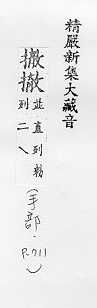 精嚴新集大藏音
撤撤並直列勑
列二
(手部.
P.711)